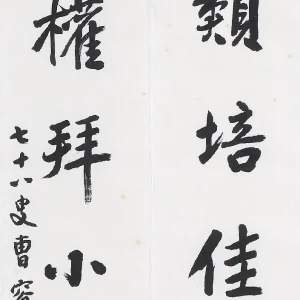 類培佳
權拜小
七十八叟曹容